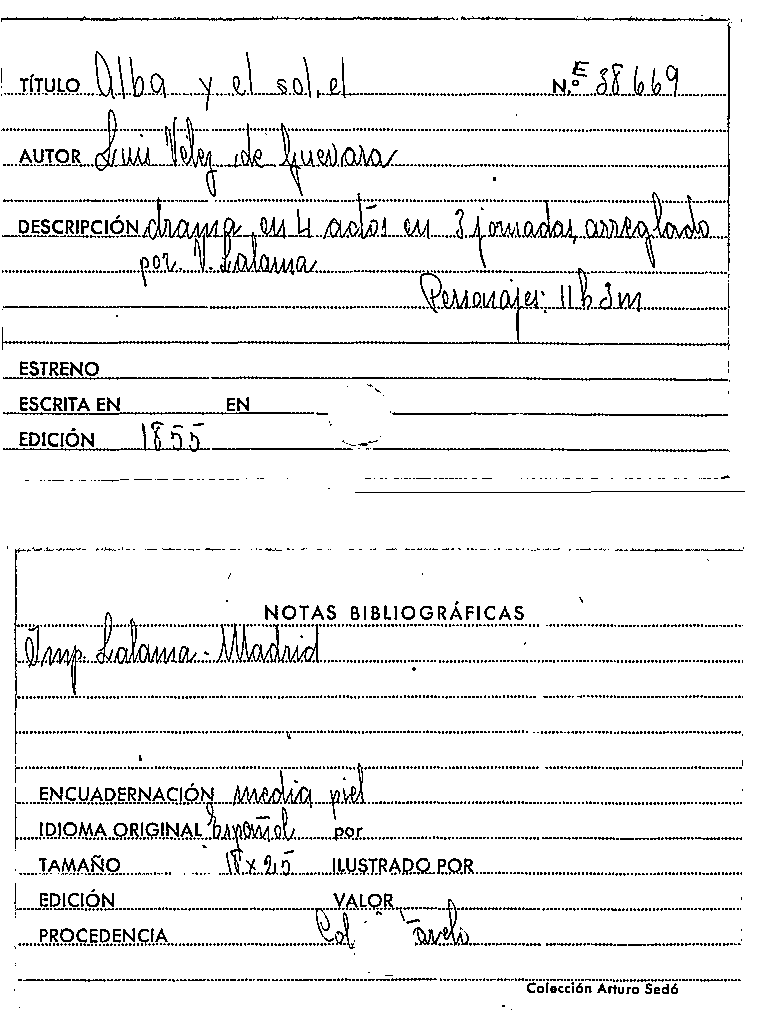 TÍTULO Alba y el sol, el N.º E 38669
AUTOR Luis Vélez de Guevara
DESCRIPCIÓN drama en 4 actos en 3 jornadas, arreglado
por V. Lalama
Personajes: 11 h 3 m
ESTRENO
ESCRITA EN EN
EDICIÓN 1855
NOTAS BIBLIOGRÁFICAS
Imp. Lalama - Madrid
ENCUADERNACIÓN media piel
IDIOMA ORIGINAL Español por
TAMAÑO 18 x 25 ILUSTRADO POR
EDICIÓN VALOR
PROCEDENCIA Col
Colección Arturo Sedó